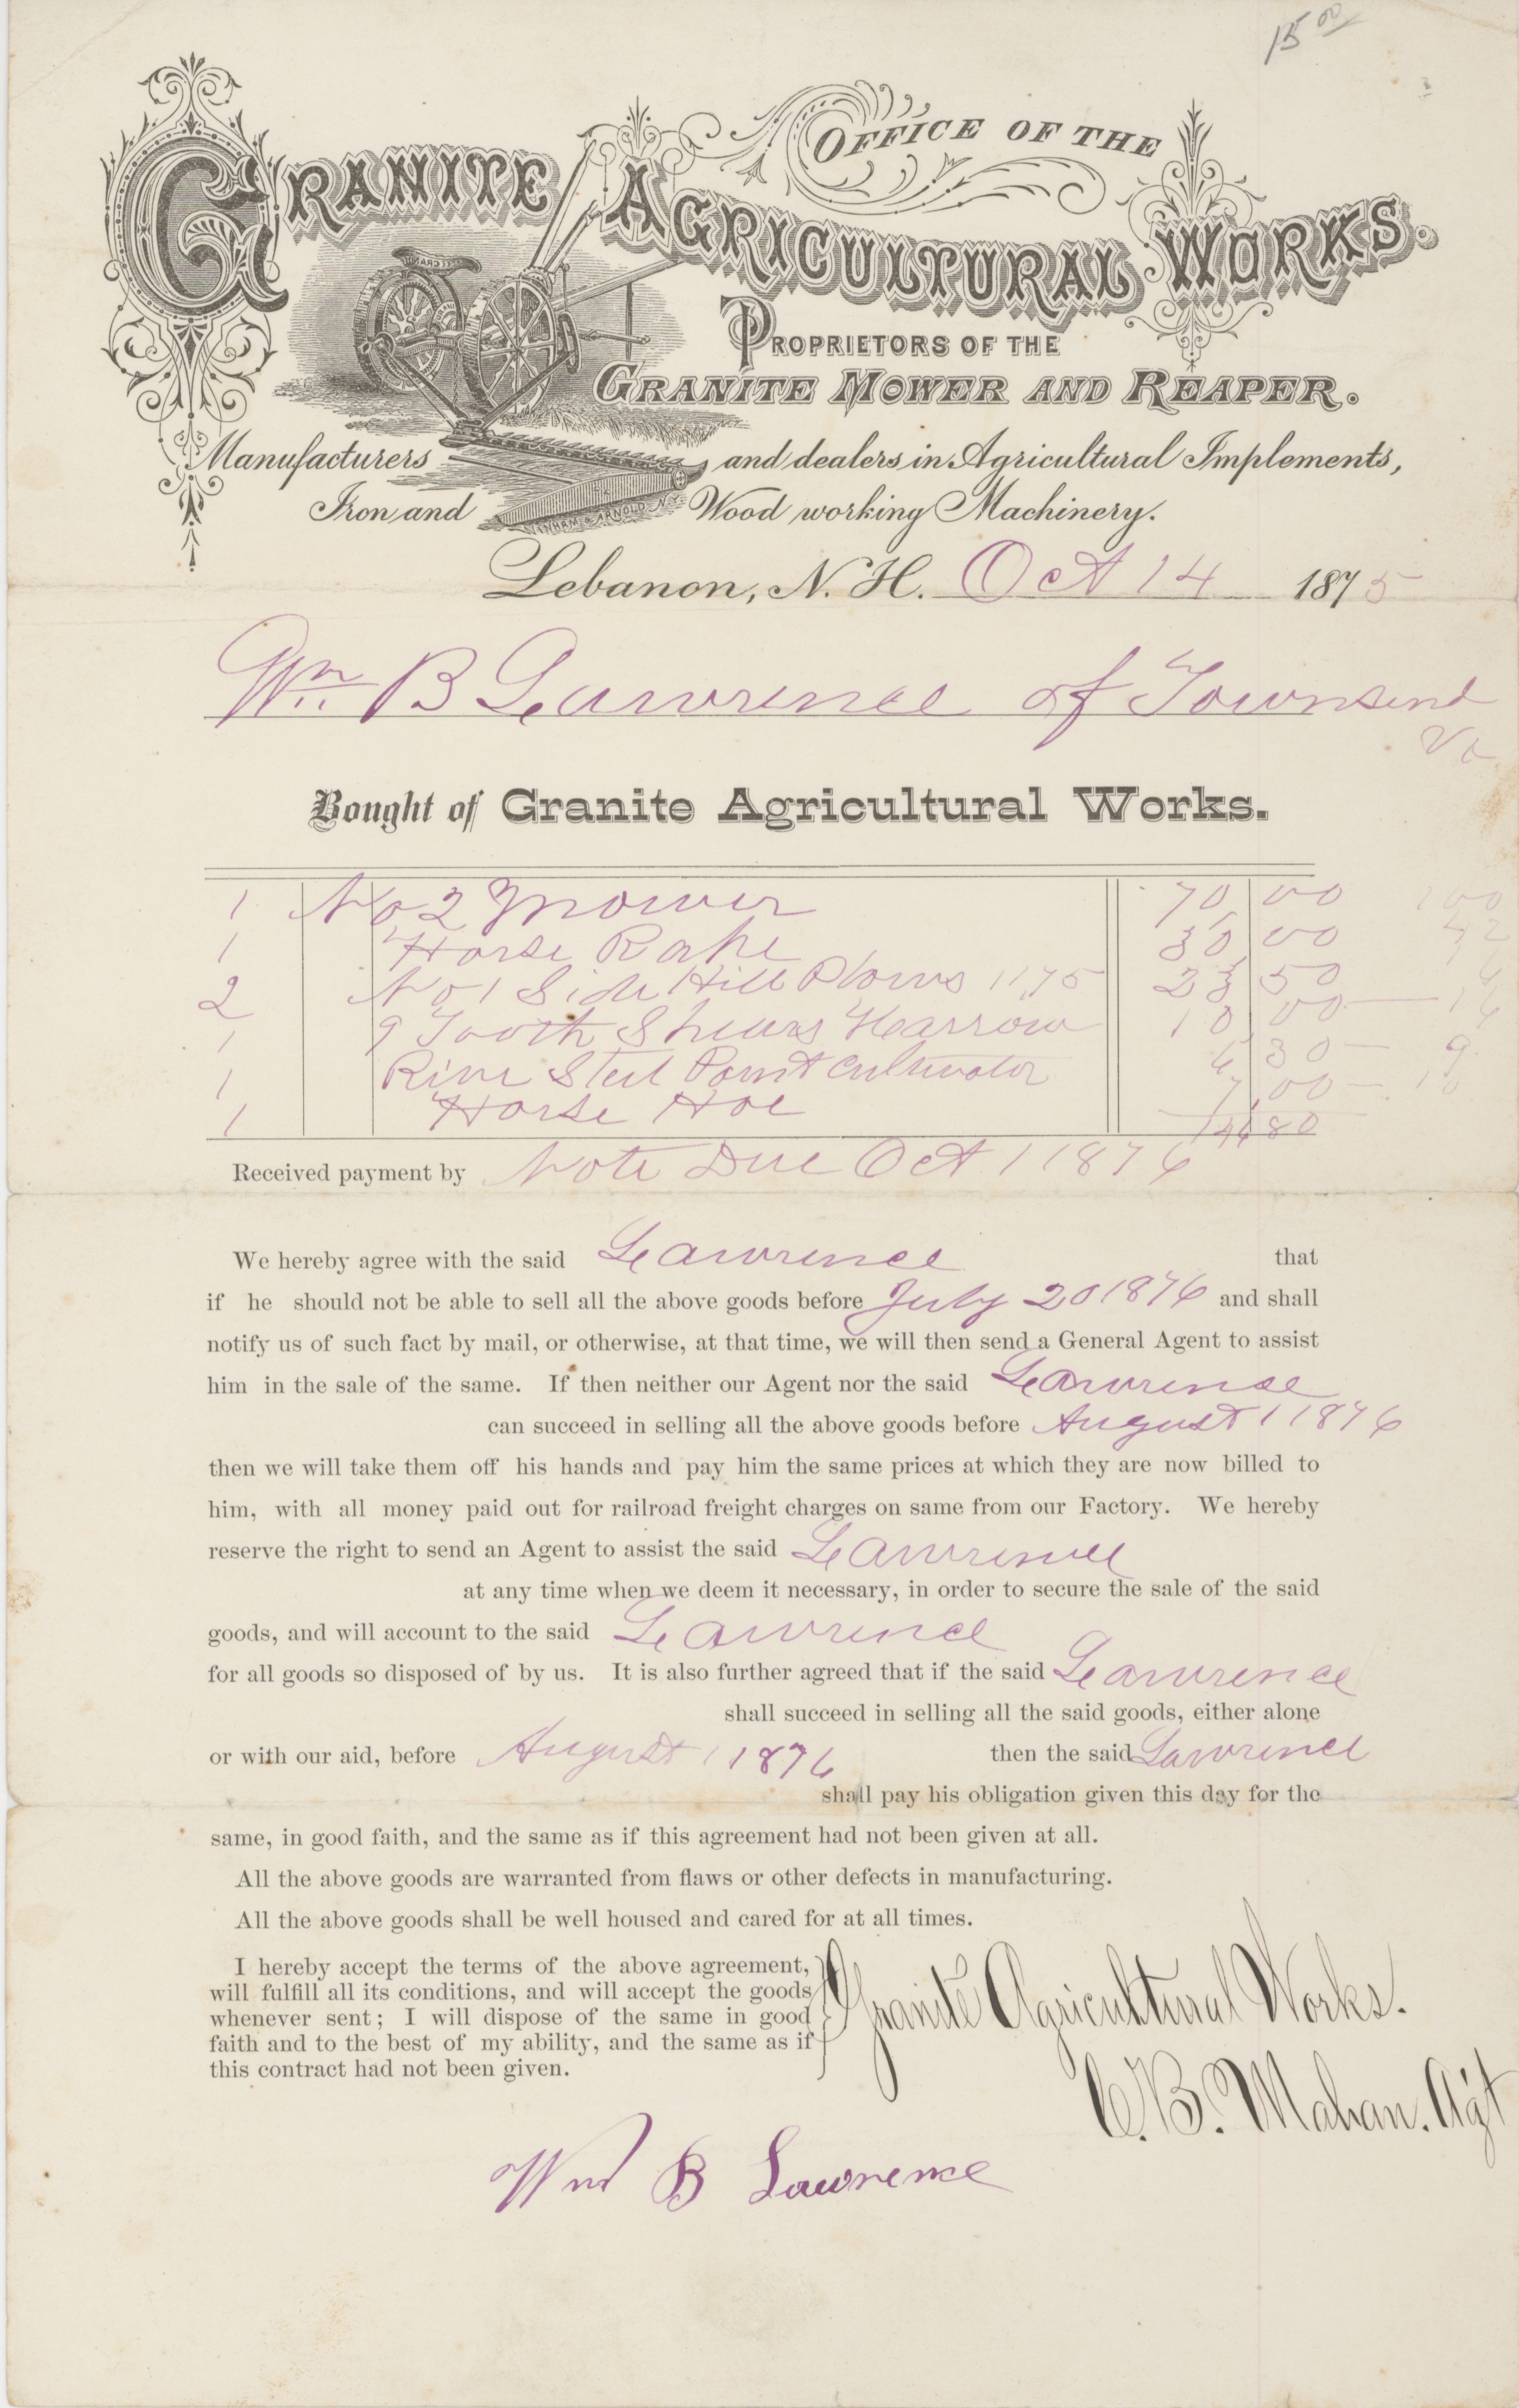 15 00
OFFICE OF THE
GRANITE AGRICULTURAL WORKS.
PROPRIETORS OF THE
GRANITE MOWER AND REAPER.
Manufacturers and dealers in Agricultural Implements,
Iron and Wood working Machinery.
Lebanon, N. H. Oct 14 1875
Wm B Lawrence of Townsend
Vt
Bought of Granite Agricultural Works.
1 No 2 Mower 70 00 100
1 Horse Rake 30 00 42
2 No 1 Side Hill Plows 11,75 23 50
1 9 Tooth Shears Harrow 10 00 — 14
1 Steel Point Cultivator 6 30 — 9
1 Horse Hoe 7,00 — 10
146 80
Received payment by Note Due Oct 1 1876
We hereby agree with the said Lawrence that
if he should not be able to sell all the above goods before July 20 1876 and shall
notify us of such fact by mail, or otherwise, at that time, we will then send a General Agent to assist
him in the sale of the same. If then neither our Agent nor the said Lawrence
can succeed in selling all the above goods before August 1 1876
then we will take them off his hands and pay him the same prices at which they are now billed to
him, with all money paid out for railroad freight charges on same from our Factory. We hereby
reserve the right to send an Agent to assist the said Lawrence
at any time when we deem it necessary, in order to secure the sale of the said
goods, and will account to the said Lawrence
for all goods so disposed of by us. It is also further agreed that if the said Lawrence
shall succeed in selling all the said goods, either alone
or with our aid, before August 1 1876 then the said Lawrence
shall pay his obligation given this day for the
same, in good faith, and the same as if this agreement had not been given at all.
All the above goods are warranted from flaws or other defects in manufacturing.
All the above goods shall be well housed and cared for at all times.
I hereby accept the terms of the above agreement,
will fulfill all its conditions, and will accept the goods
whenever sent; I will dispose of the same in good
faith and to the best of my ability, and the same as if
this contract had not been given.
Granite Agricultural Works.
C. B. Mahan. Agt
Wm B Lawrence